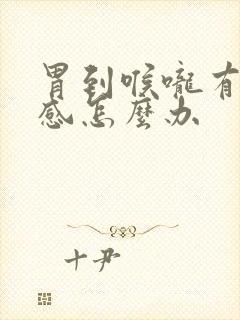 胃到喉嚨有
感怎麼办
十尹